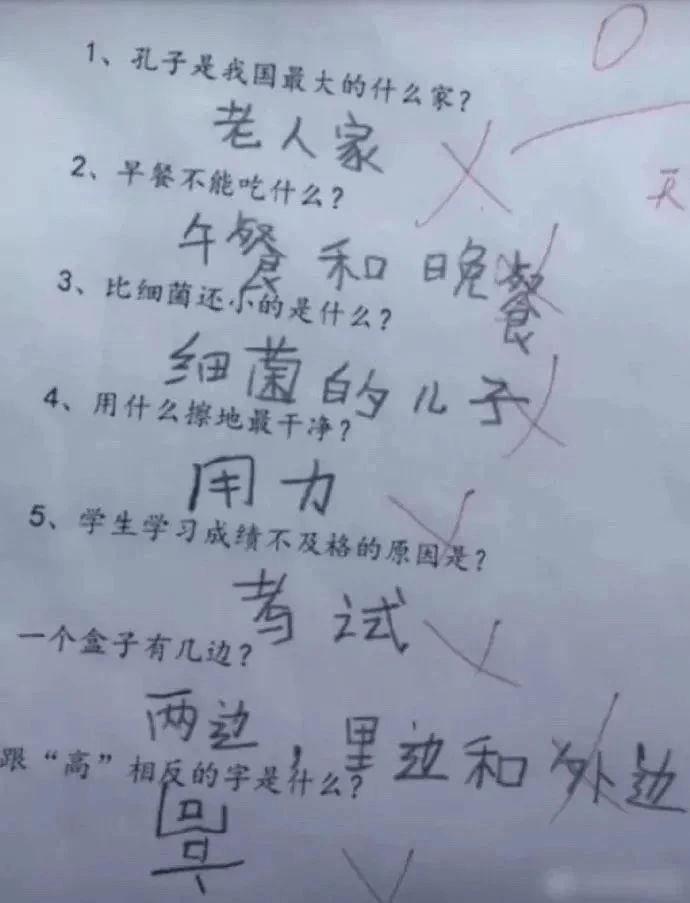 0
1、孔子是我国最大的什么家？
老人家
2、早餐不能吃什么？
午餐和晚餐
3、比细菌还小的是什么？
细菌的儿子
4、用什么擦地最干净？
用力
5、学生学习成绩不及格的原因是？
考试
一个盒子有几边？
两边，里边和外边
跟“高”相反的字是什么？